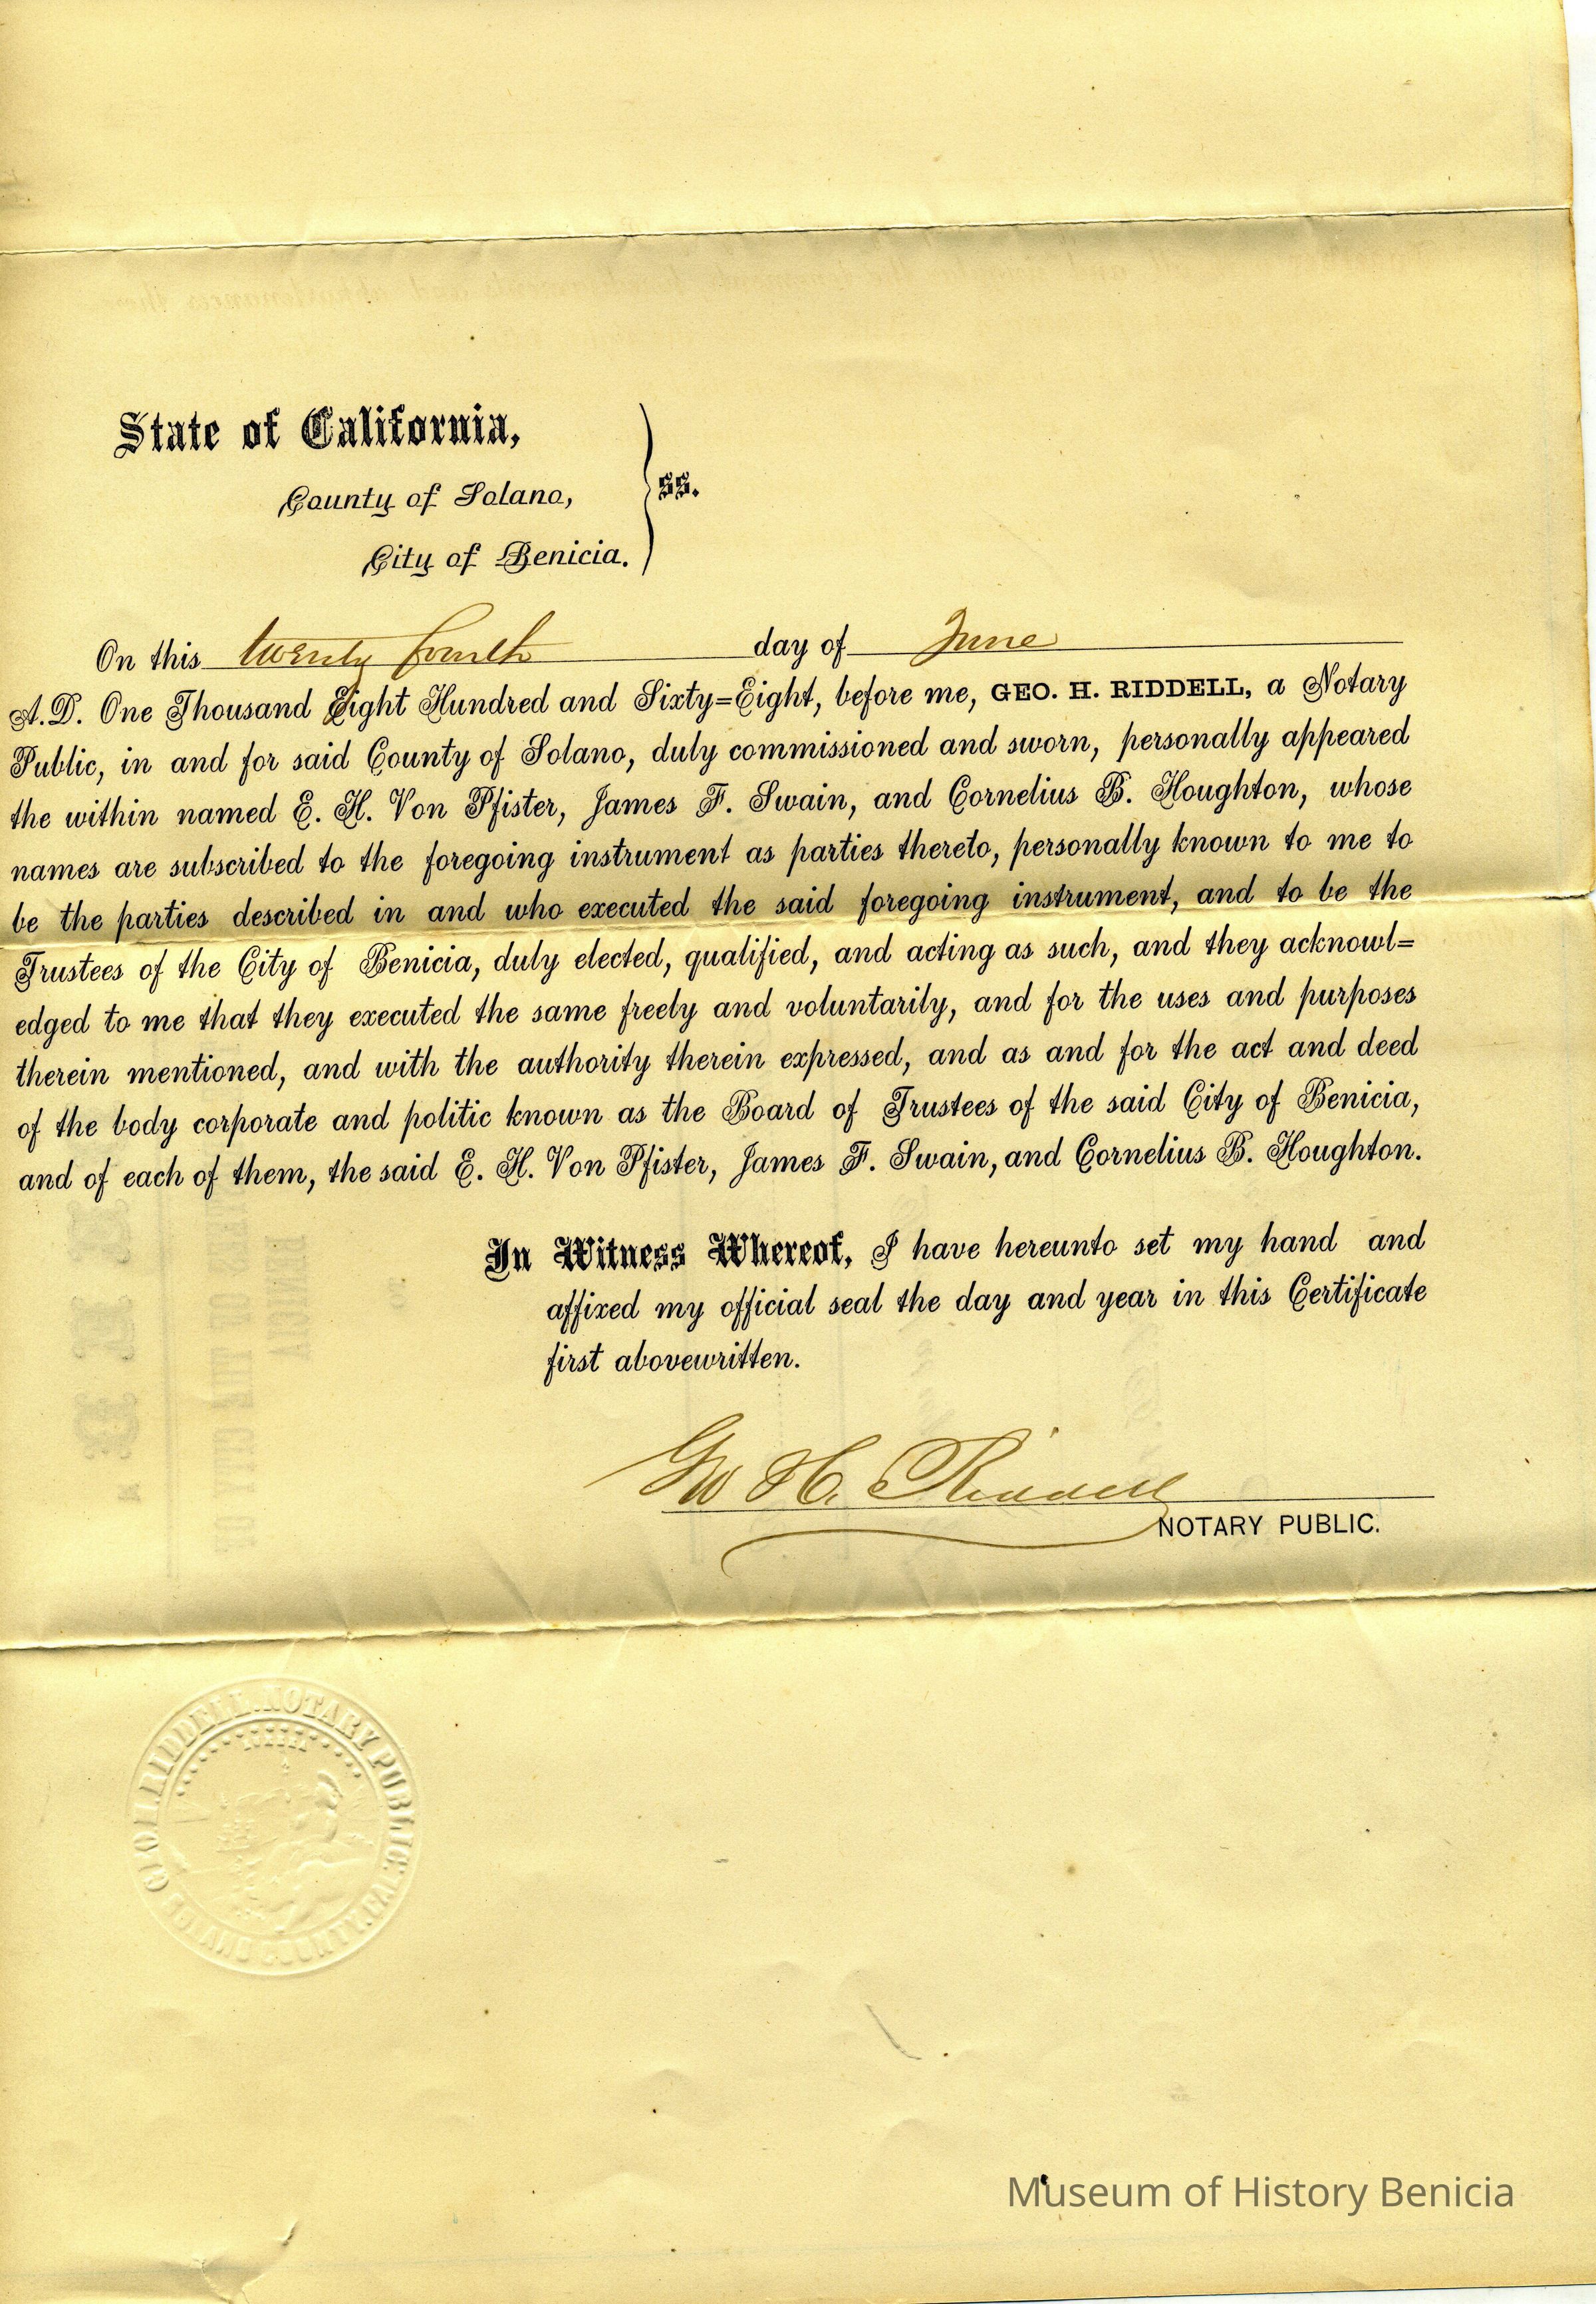 State of California,
County of Solano,
City of Benicia.
ss.
On this twenty fourth day of June
A.D. One Thousand Eight Hundred and Sixty=Eight, before me, GEO. H. RIDDELL, a Notary
Public, in and for said County of Solano, duly commissioned and sworn, personally appeared
the within named E. H. Von Pfister, James F. Swain, and Cornelius B. Houghton, whose
names are subscribed to the foregoing instrument as parties thereto, personally known to me to
be the parties described in and who executed the said foregoing instrument, and to be the
Trustees of the City of Benicia, duly elected, qualified, and acting as such, and they acknowl=
edged to me that they executed the same freely and voluntarily, and for the uses and purposes
therein mentioned, and with the authority therein expressed, and as and for the act and deed
of the body corporate and politic known as the Board of Trustees of the said City of Benicia,
and of each of them, the said E. H. Von Pfister, James F. Swain, and Cornelius B. Houghton.
In Witness Whereof, I have hereunto set my hand and
affixed my official seal the day and year in this Certificate
first abovewritten.
Geo H. Riddell
NOTARY PUBLIC.
RIDDELL. NOTARY PUBLIC
SOLANO COUNTY, CAL.
Museum of History Benicia